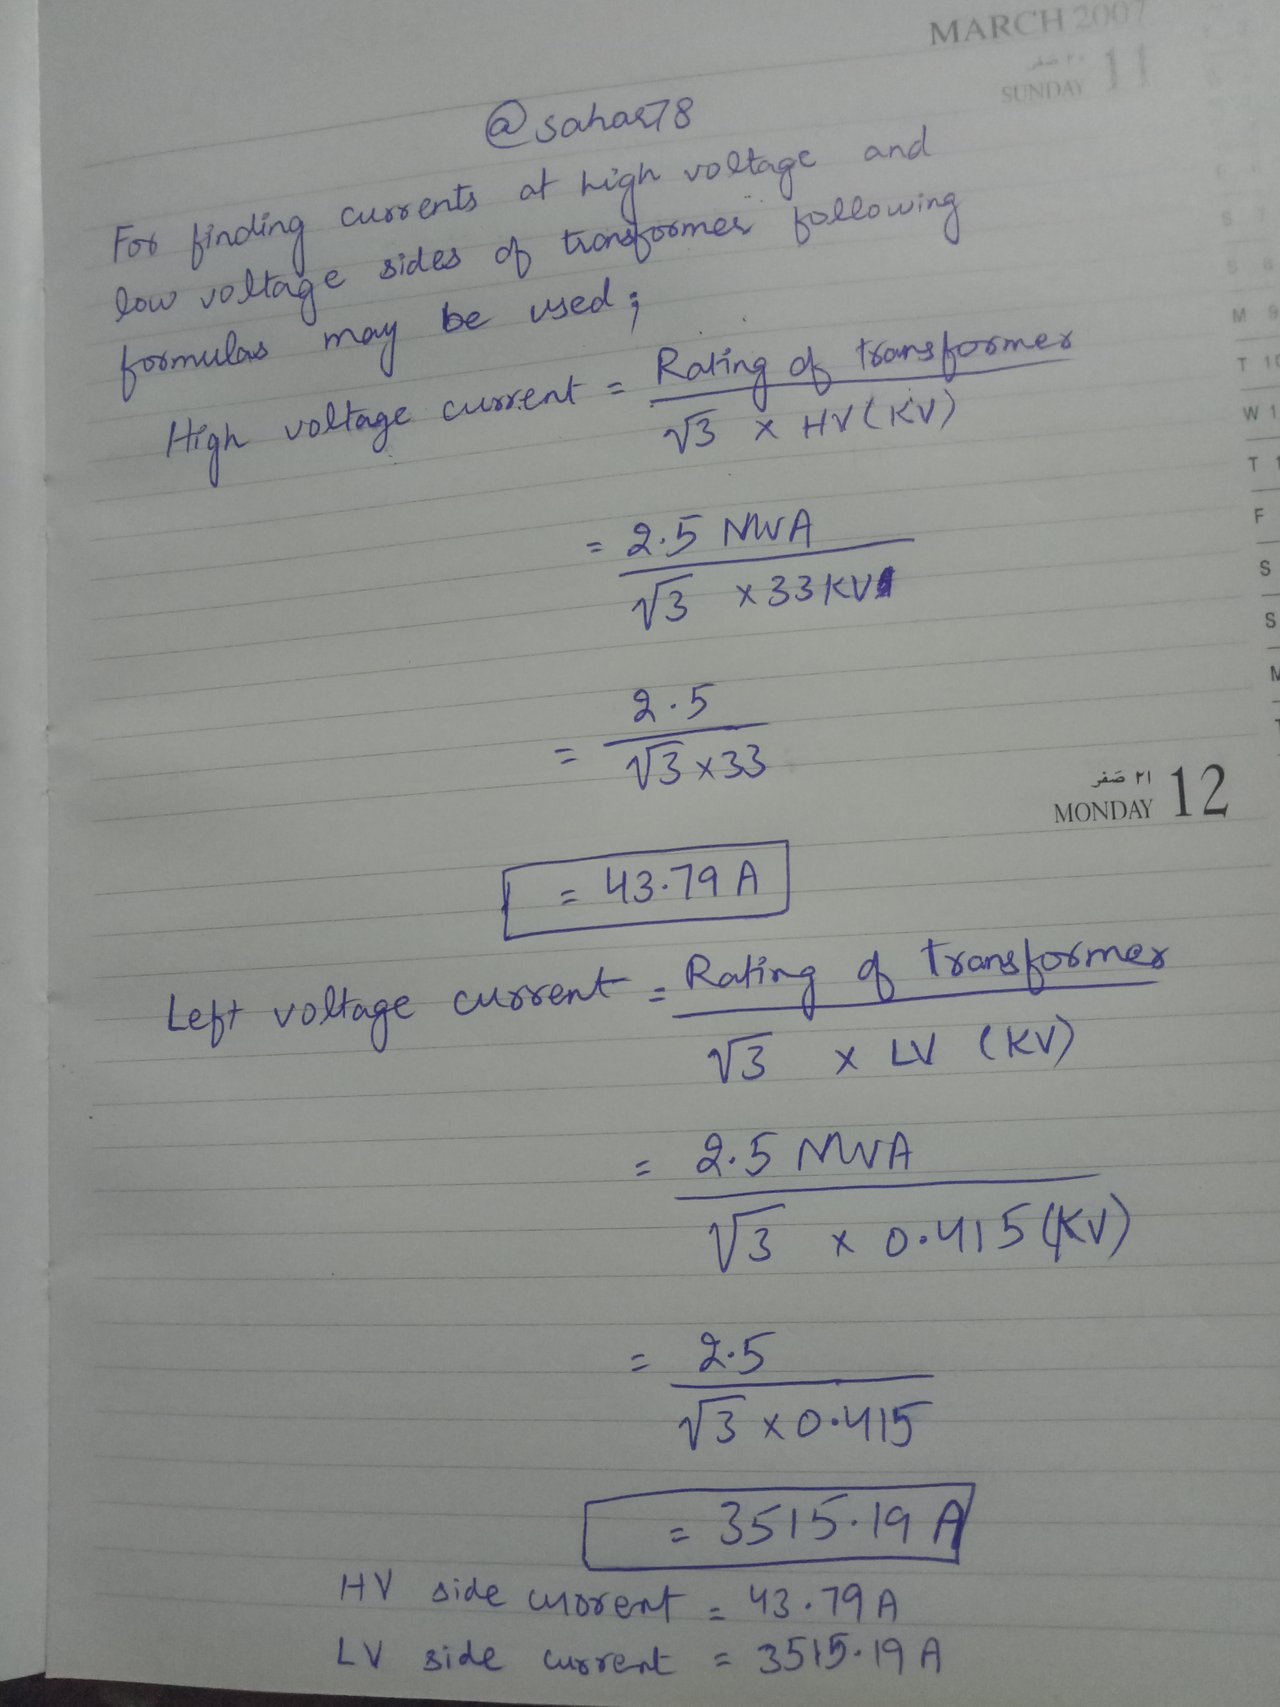 MARCH 2007
٢٠ صفر
SUNDAY 11
@sahar78
For finding currents at high voltage and
low voltage sides of transformer following
formulas may be used;
High voltage current = Rating of transformer
√3 x HV (KV)
= 2.5 MVA
√3 x 33KV
= 2.5
√3 x 33
٢١ صَفر
MONDAY 12
= 43.79 A
Left voltage current = Rating of transformer
√3 x LV (KV)
= 2.5 MVA
√3 x 0.415 (KV)
= 2.5
√3 x 0.415
= 3515.19 A
HV side current = 43.79 A
LV side current = 3515.19 A
S
S
M
T 10
W 1
T 1
F
S
S
M